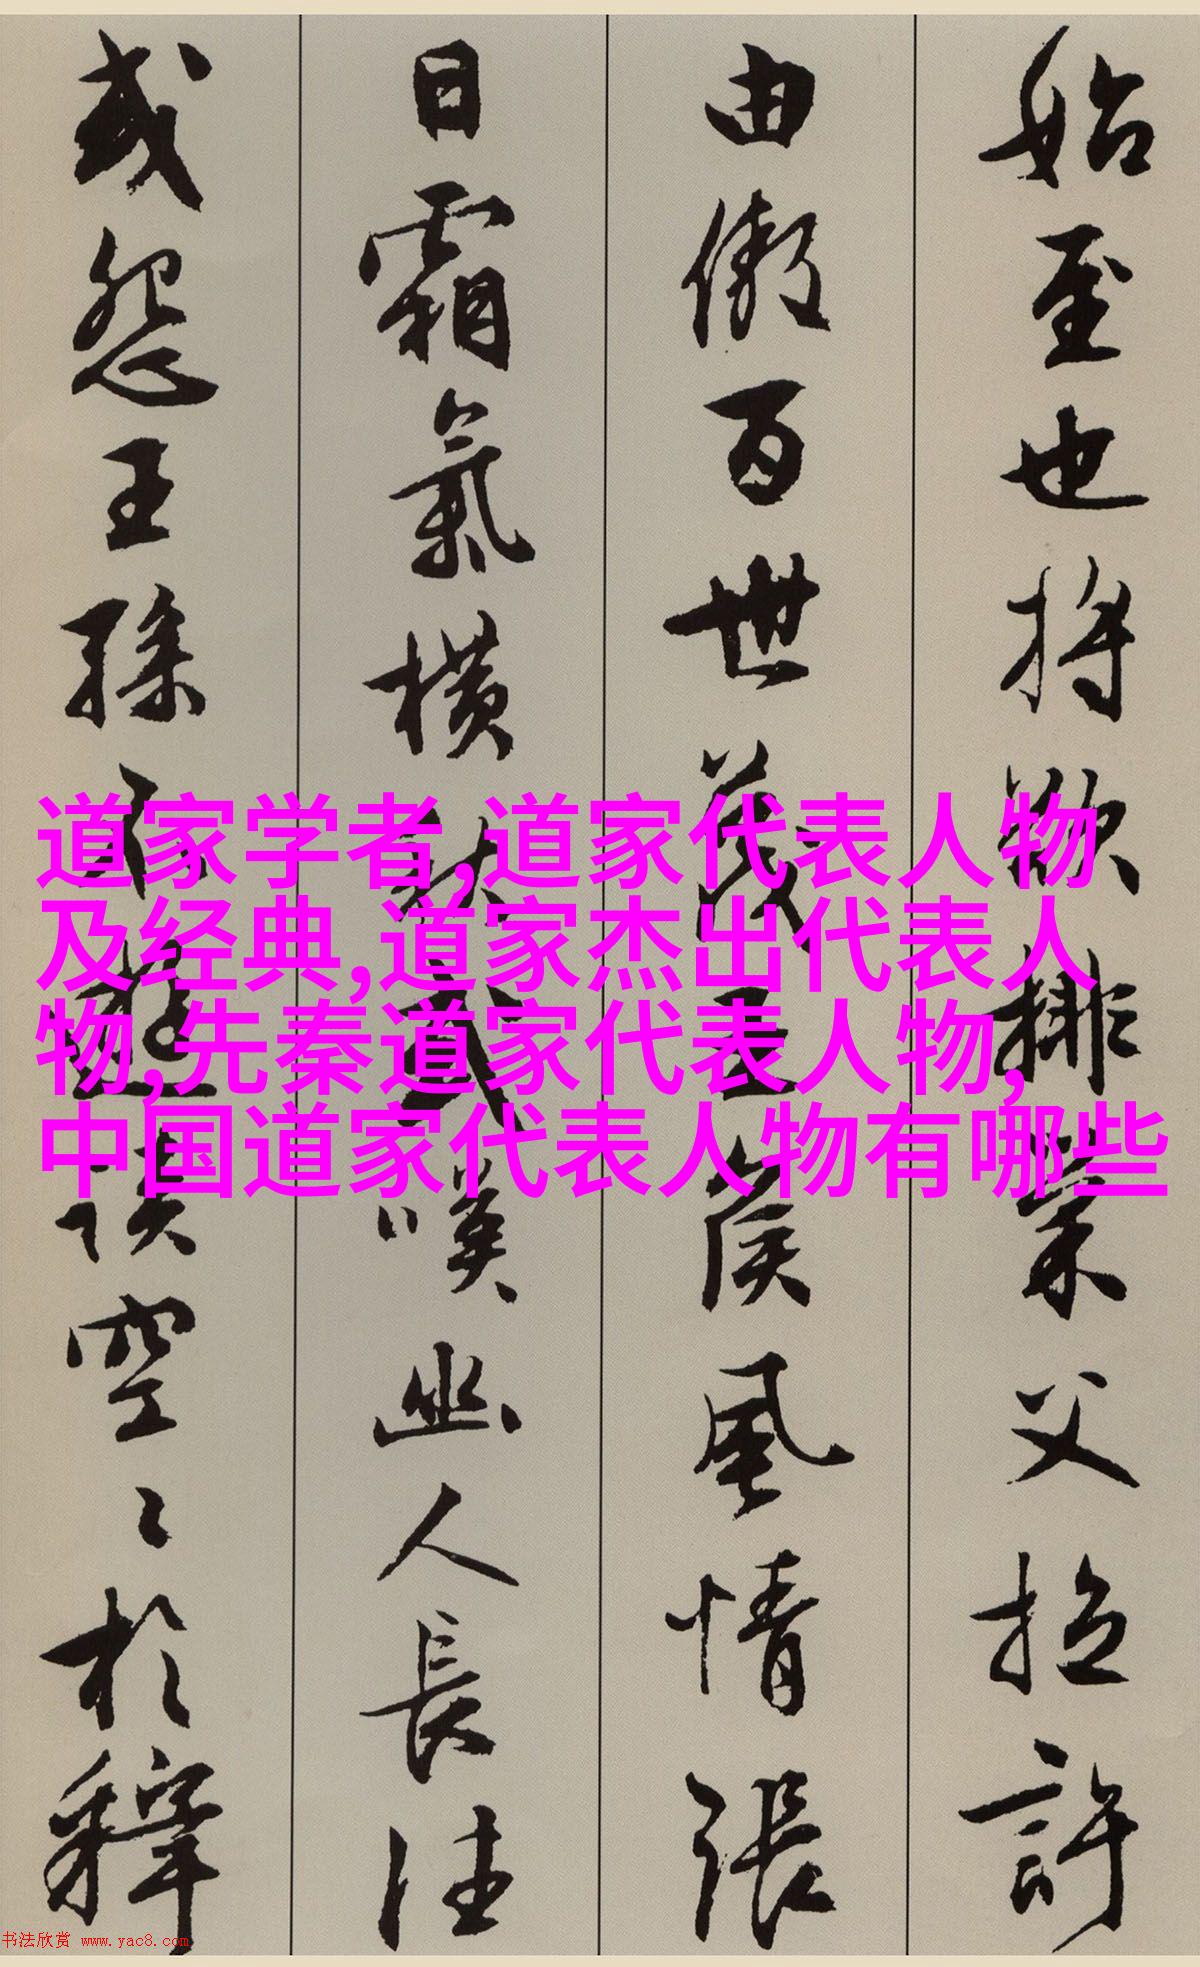 始至也將欲排巢父拉許
由傲百世蔑王侯風情張
日霜氣橫秋或嘆幽人長往
或怨王孫不遊談空〻於釋
道家学者,道家代表人物
及经典,道家杰出代表人
物,先秦道家代表人物,
中国道家代表人物有哪些
书法欣赏 www.yac8.com